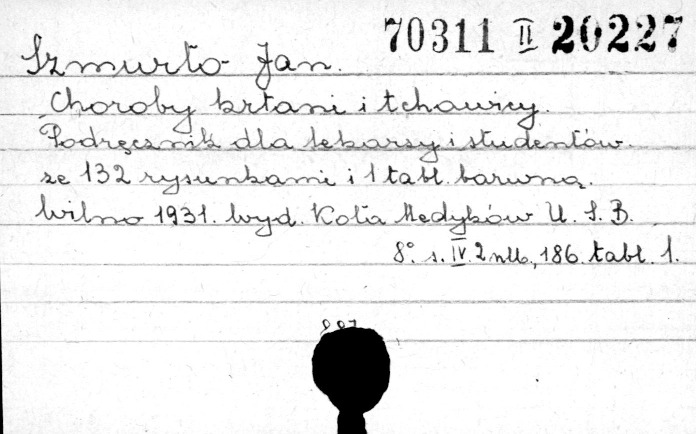 70311 II 20227
Szmurło Jan.
Choroby krtani i tchawicy.
Podręcznik dla lekarzy i studentów
ze 132 rysunkami i 1 tabl. barwną.
Wilno 1931. Wyd. Koła Medyków U. S. B.
8° s. IV. 2 nlb, 186. tabl. 1.